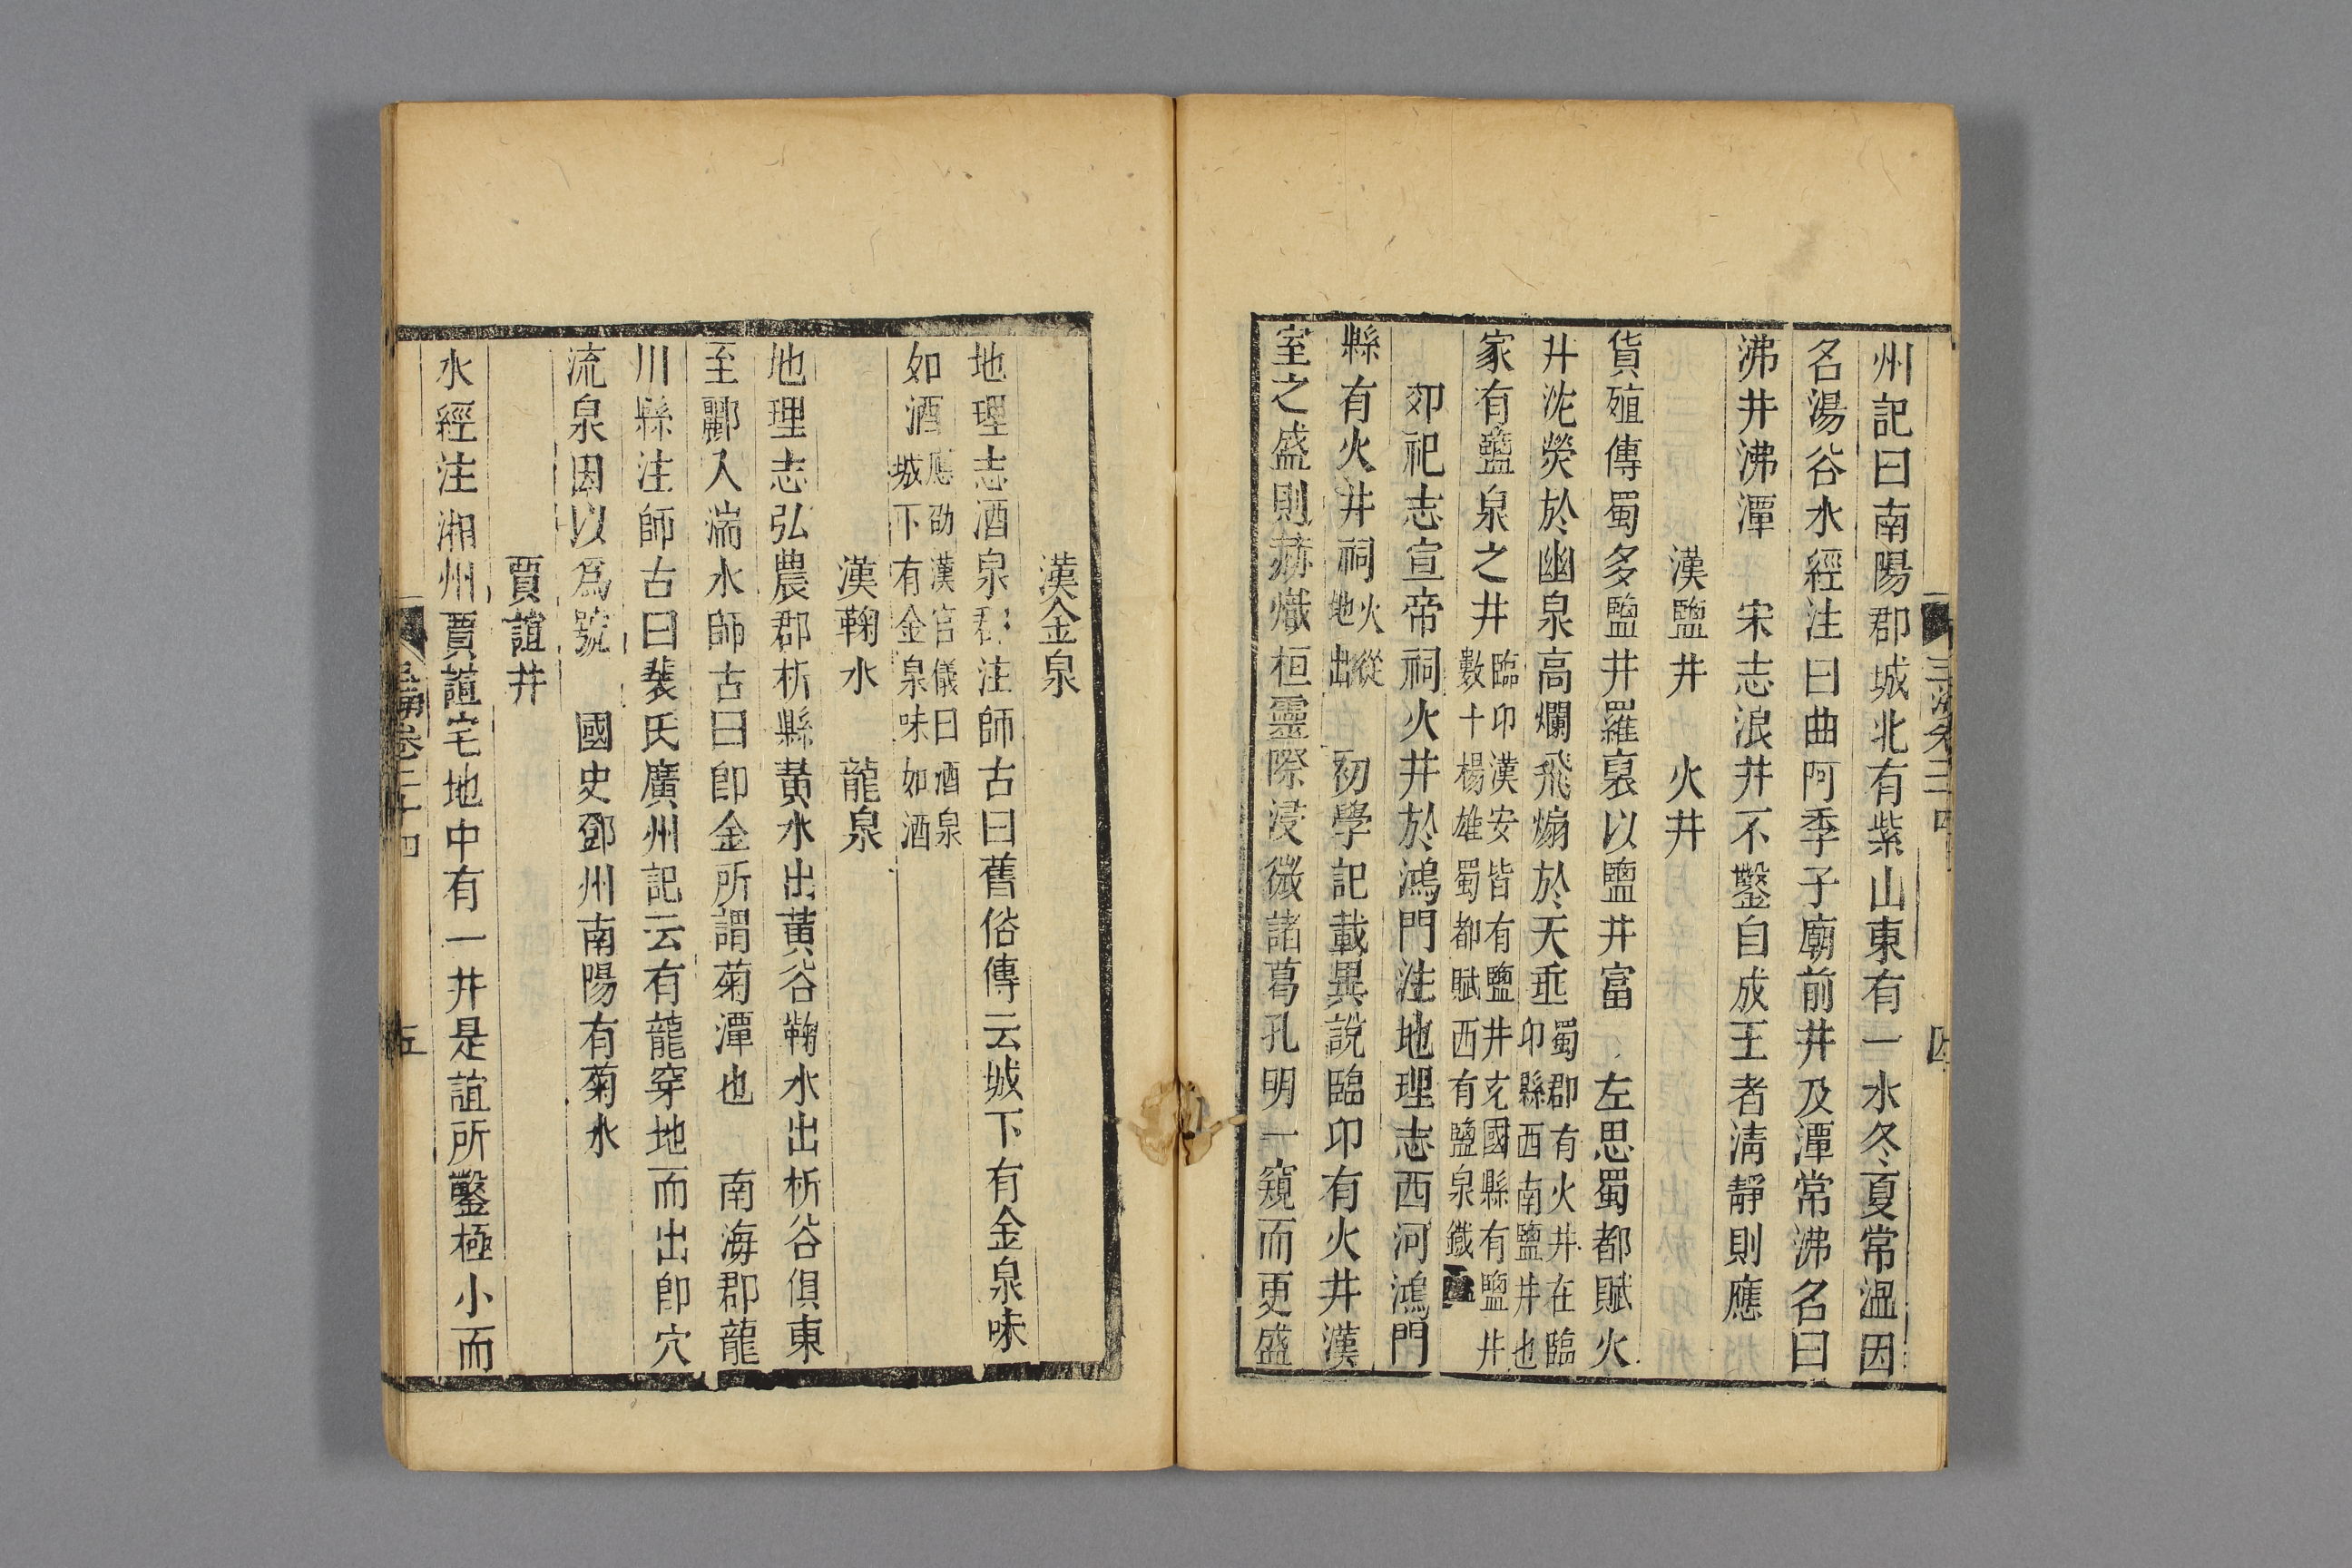 州記曰南陽郡城北有紫山東有一水冬夏常溫因
名湯谷水經注曰曲阿季子廟前井及潭常沸名曰
沸井沸潭 宋志浪井不鑿自成王者淸靜則應
漢鹽井 火井
貨殖傳蜀多鹽井羅裒以鹽井富 左思蜀都賦火
井沈熒於幽泉高爓飛煽於天垂蜀郡有火井在臨卭縣西南鹽井也
家有鹽泉之井臨卭漢安皆有鹽井充國縣有鹽井數十楊雄蜀都賦西有鹽泉鐵
郊祀志宣帝祠火井於鴻門注地理志西河鴻門
縣有火井祠火從地出 初學記載異說臨卭有火井漢
室之盛則赫熾桓靈際浸微諸葛孔明一窺而更盛
漢金泉
地理志酒泉郡注師古曰舊俗傳云城下有金泉味
如酒應劭漢官儀曰酒泉城下有金泉味如酒
漢鞠水 龍泉
地理志弘農郡析縣黃水出黃谷鞠水出析谷俱東
至酈入湍水師古曰卽金所謂菊潭也 南海郡龍
川縣注師古曰裴氏廣州記云有龍穿地而出卽穴
流泉因以爲號 國史鄧州南陽有菊水
賈誼井
水經注湘州賈誼宅地中有一井是誼所鑿極小而
卷二十四
五